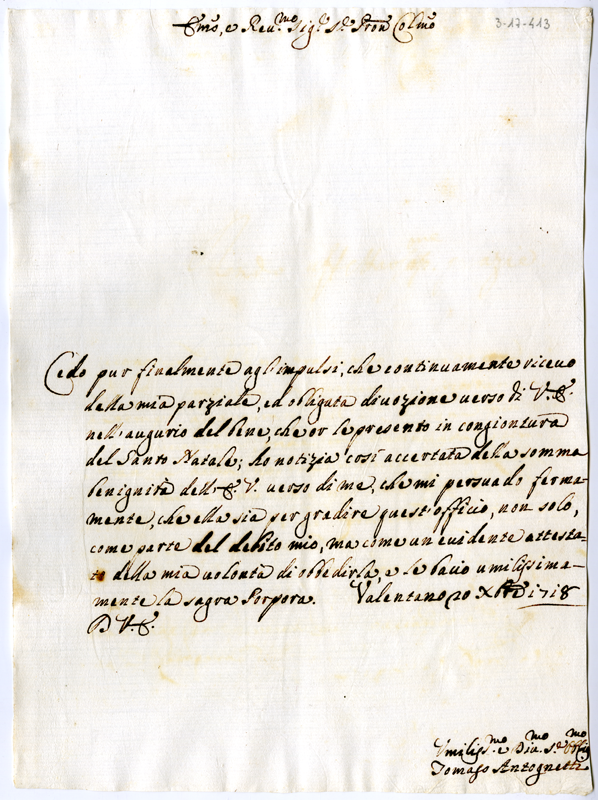 Em̃o, e Reu.mo Sig.r S.r Pron Colmo
3-17-413
Cedo pur finalmente agl'impulsi, che continuamente riceuo
della mia parziale, ed obligata diuozione uerso di V.E.
nell'augurio del bene, che or le presento in congiontura
del Santo Natale; Ho notizia così accertata della somma
benignità dell'E.V. uerso di me, che mi persuado ferma-
mente, che ella sia per gradire quest'officio, non solo,
come parte del debito mio, ma come un euidente attesta-
to della mia uolontà di obbedirla, e le bacio umilissima-
mente la sagra Porpora. Valentano 20 Xbre 1718
D V.E.
Vmiliss.mo e Diu.mo S.re Obblig.mo
Tomaso Antognetti